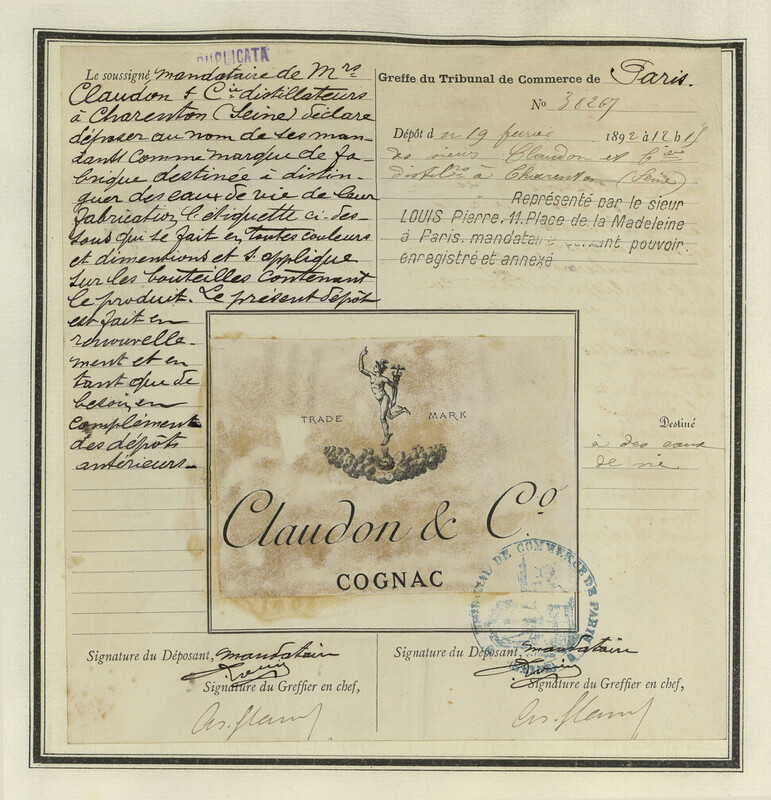 DUPLICATA
Le soussigné mandataire de Mrs
Claudon & Cie distillateurs
à Charenton (Seine) déclare
déposer au nom de ses man-
dants comme marque de fa-
brique destinée à distin-
guer des eaux de vie de leur
fabrication l'etiquette ci-des-
sous qui se fait en toutes couleurs
et dimentions et s'applique
sur les bouteilles contenant
le produit. Le présent dépôt
est fait en
renouvelle-
ment et en
tant que de
besoin, en
complément
des dépôts
antérieurs.
Greffe du Tribunal de Commerce de Paris.
No 38267
Dépôt du 19 février 1892 à 12 h
des sieurs Claudon et Cie
à Charenton (Seine)
Représenté par le sieur
LOUIS Pierre, 11, Place de la Madeleine
à Paris, mandataire suivant pouvoir
enregistré et annexé
Destiné
à des eaux
de vie
TRADE MARK
Claudon & Co.
COGNAC
TRIBUNAL DE COMMERCE DE PARIS
Signature du Déposant, mandataire
Louis
Signature du Greffier en chef,
Signature du Déposant, mandataire
Louis
Signature du Greffier en chef,